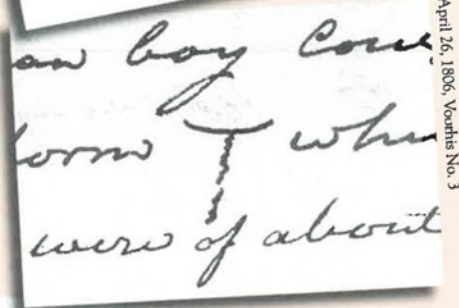 an boy Come
form T whi
were of about
April 26, 1806, Voorhis No. 3